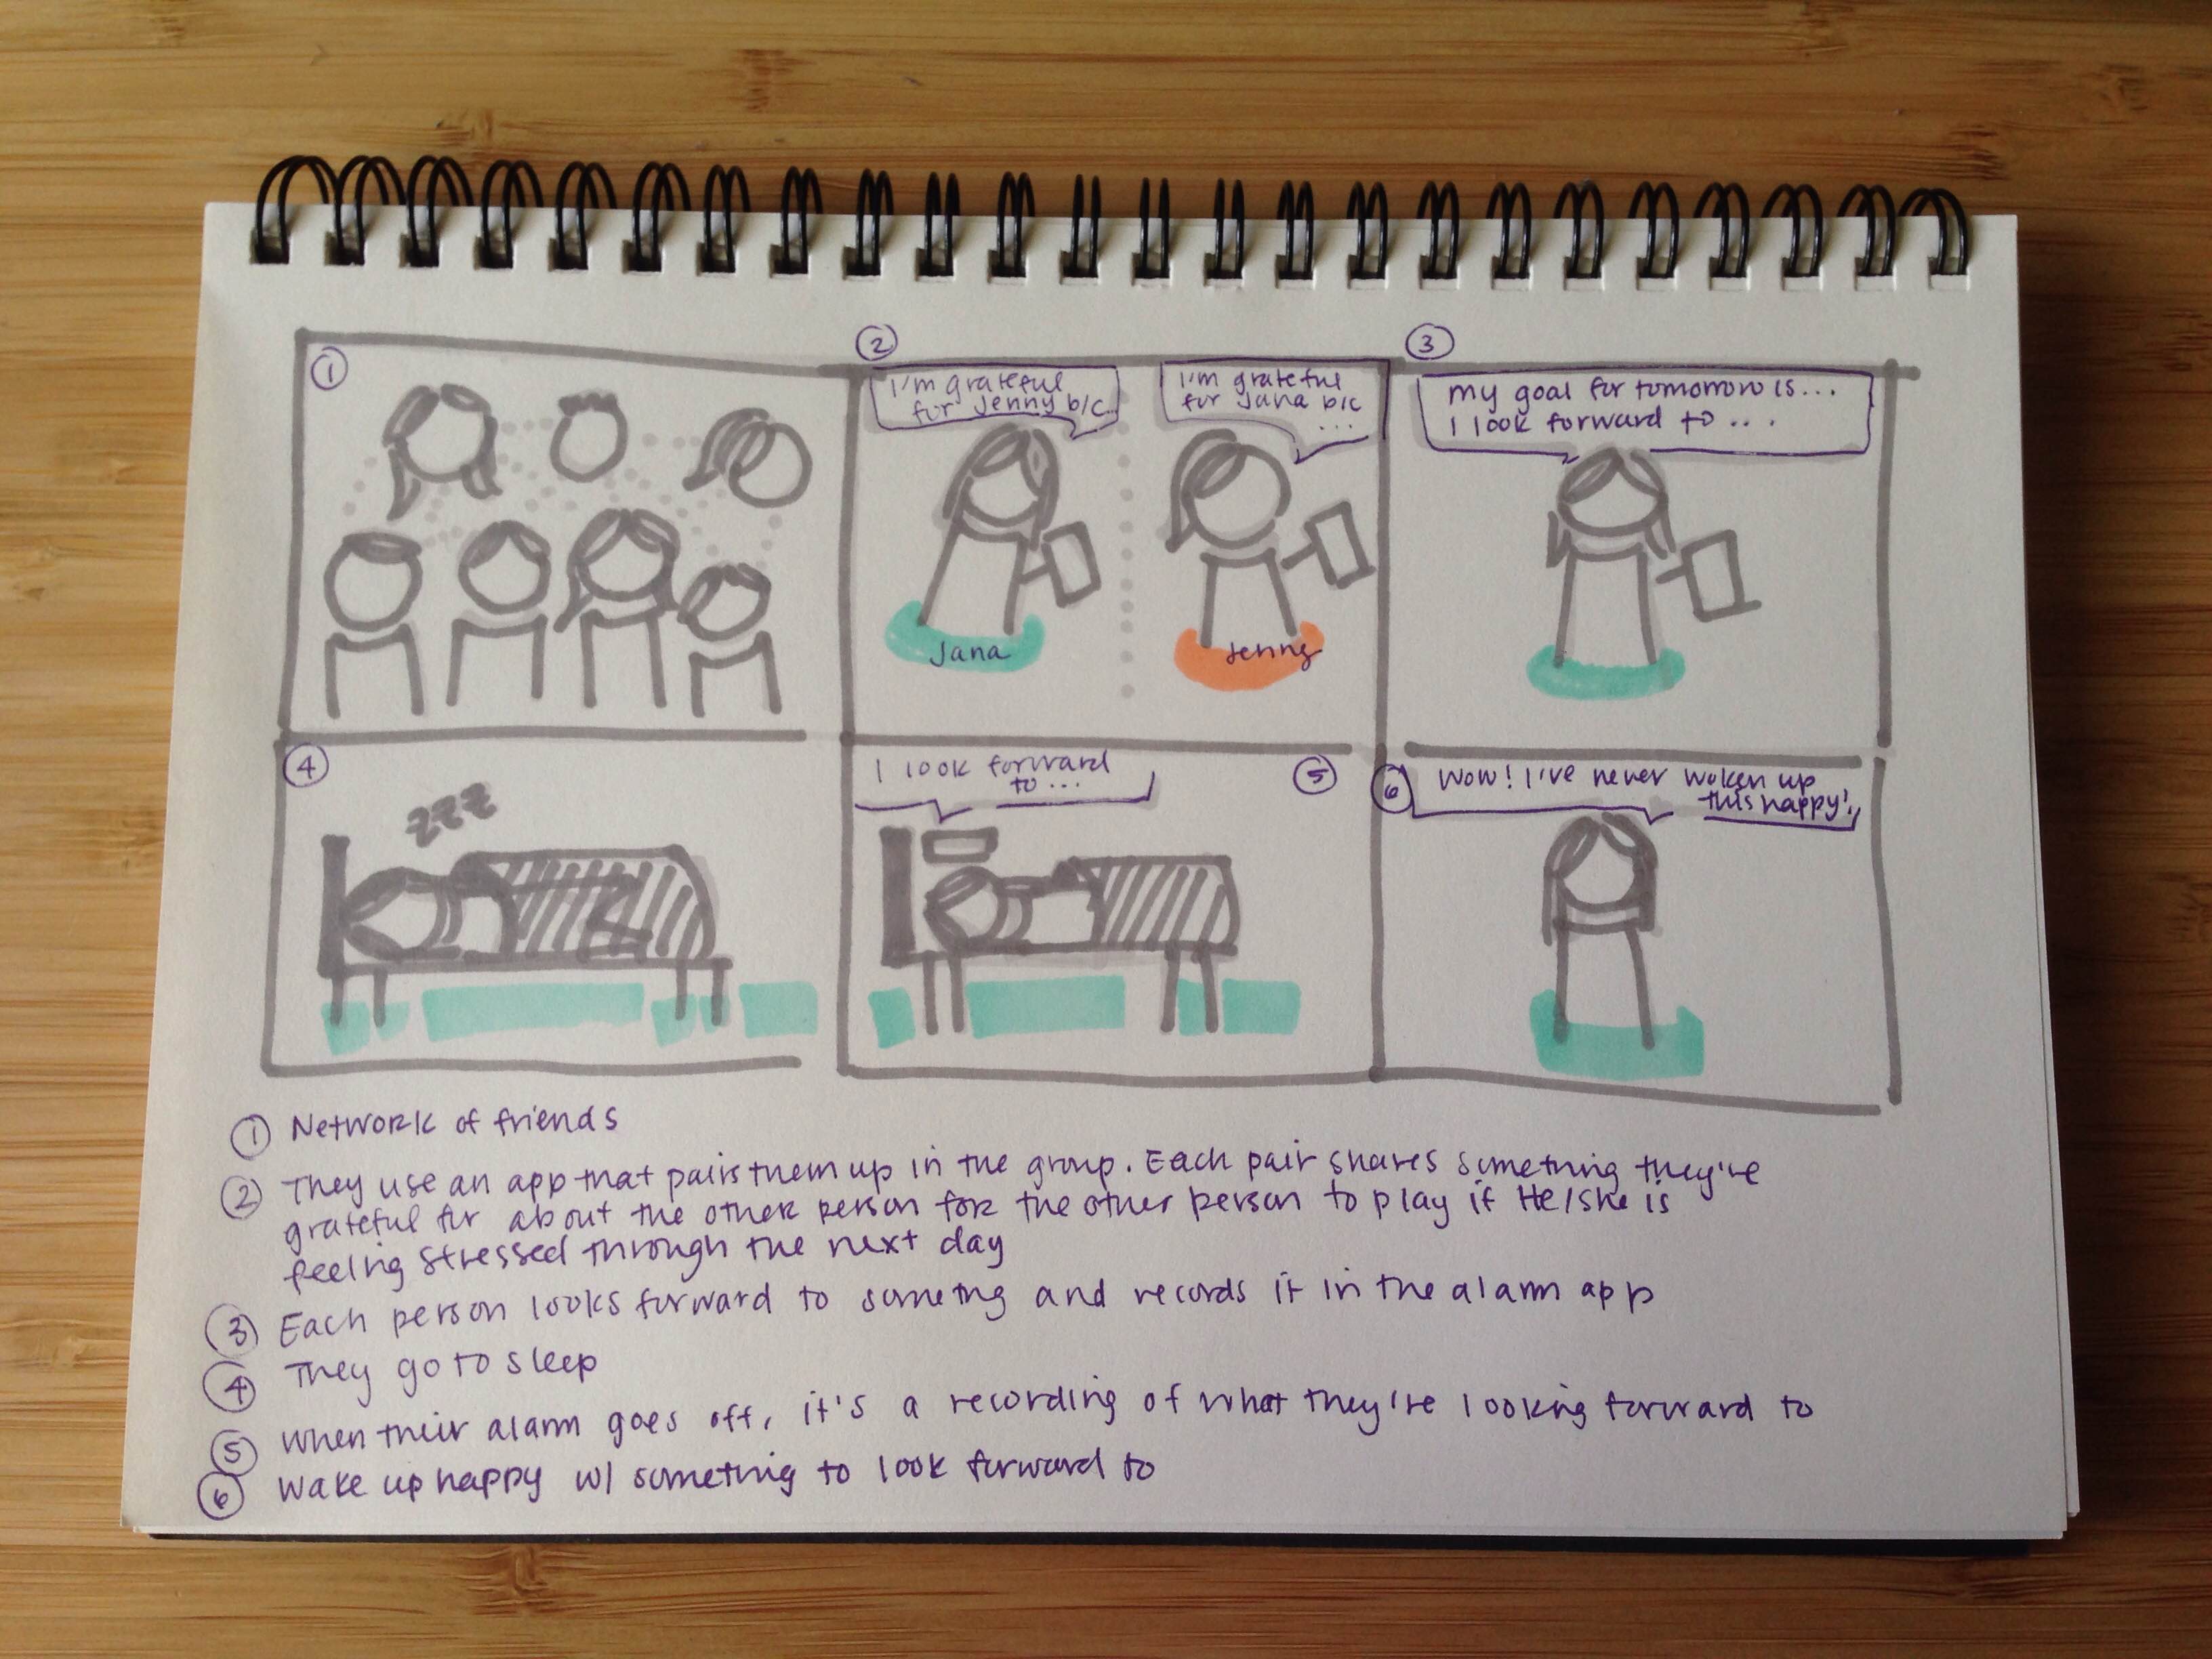 1
2
3
I'm grateful
for Jenny b/c...
I'm grateful
for Jana b/c
...
My goal for tomorrow is...
I look forward to...
Jana
Jenny
4
zzz
I look forward
to...
5
6
Wow! I've never woken up
this happy!
1 Network of friends
2 They use an app that pairs them up in the group. Each pair shares something they're
grateful for about the other person for the other person to play if He/she is
feeling stressed through the next day
3 Each person looks forward to sometng and records it in the alarm app
4 They go to sleep
5 When their alarm goes off, it's a recording of what they're looking forward to
6 Wake up happy w/ something to look forward to